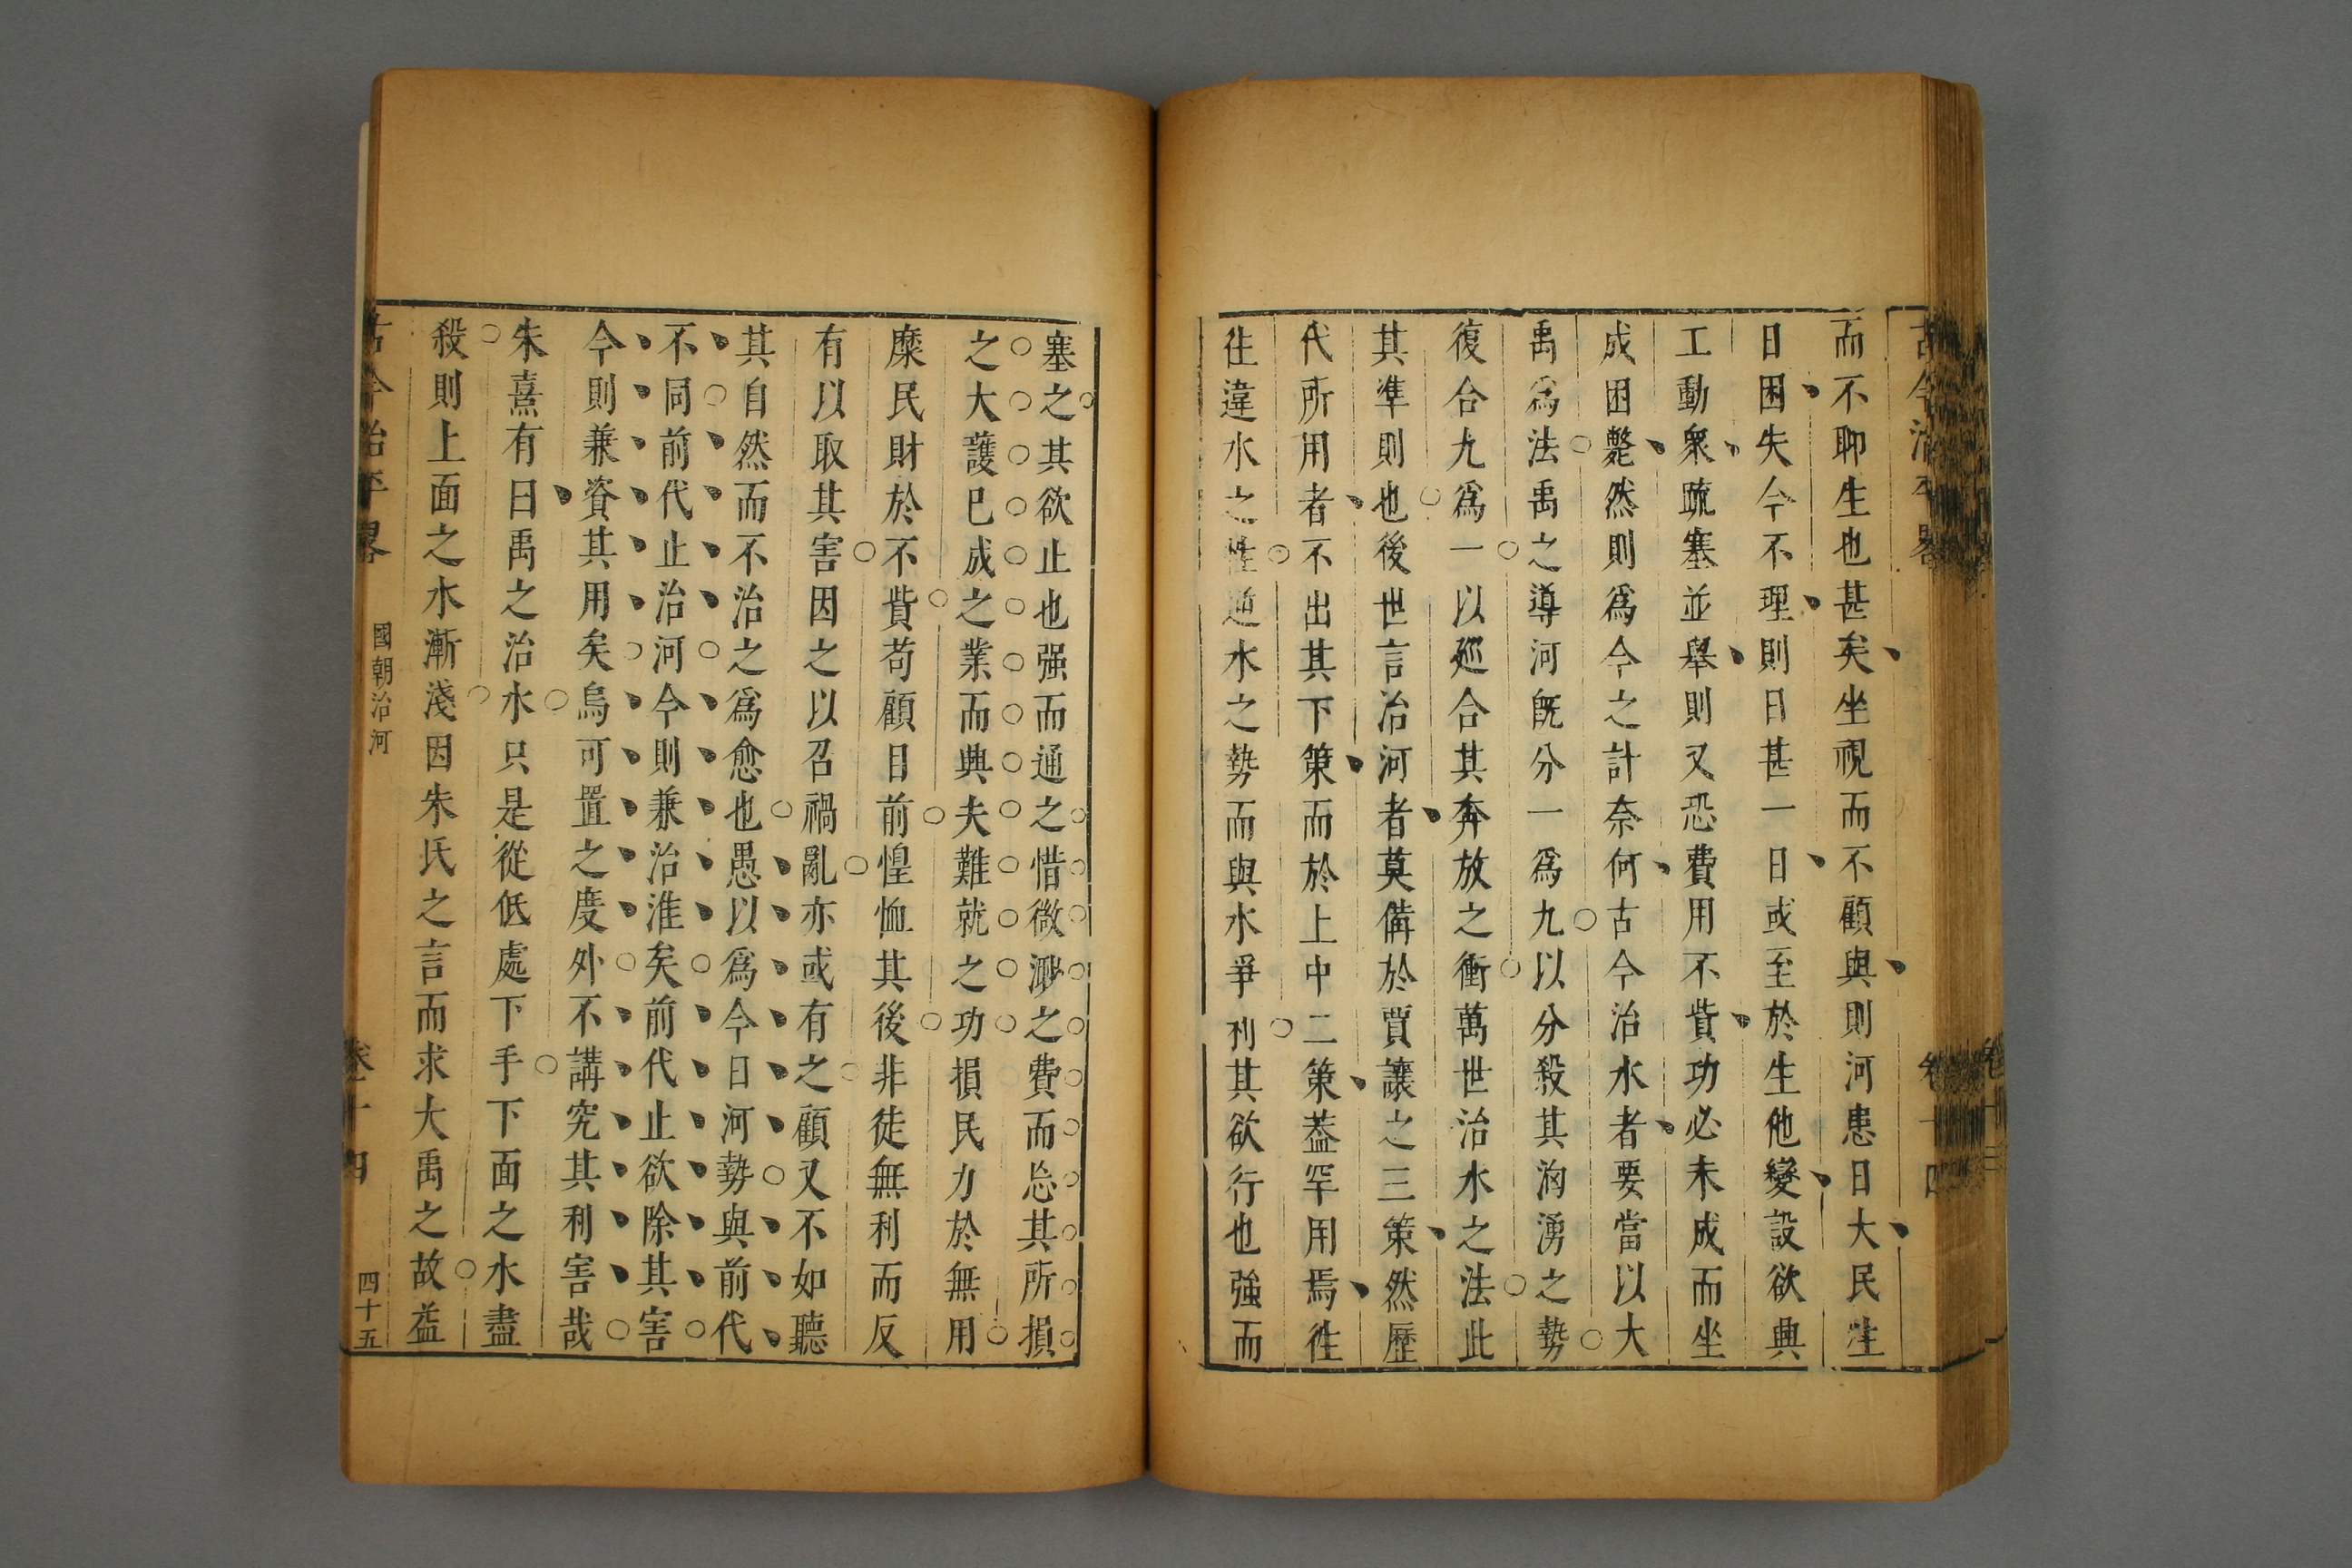 而不聊生也甚矣坐視而不顧與則河患日大民生
日困失今不理則日甚一日或至於生他變設欲典
工動衆疏塞並舉則又恐費用不貲功必未成而坐
成困斃然則爲今之計奈何古今治水者要當以大
禹爲法禹之導河旣分一爲九以分殺其洶湧之勢
復合九爲一以廵合其奔放之衝萬世治水之法此
其準則也後世言治河者莫備於賈讓之三策然歷
代所用者不出其下策而於上中二策葢罕用焉徃
徃違水之性逆水之勢而與水爭利其欲行也強而
塞之其欲止也强而通之惜微渺之費而忘其所損
之大護已成之業而典夫難就之功損民力於無用
糜民財於不貲苟顧目前惶恤其後非徒無利而反
有以取其害因之以召禍亂亦或有之顧又不如聽
其自然而不治之爲愈也愚以爲今日河勢與前代
不同前代止治河今則兼治淮矣前代止欲除其害
今則兼資其用矣烏可置之度外不講究其利害哉
朱熹有曰禹之治水只是從低處下手下面之水盡
殺則上面之水漸淺因朱氏之言而求大禹之故益
古今治平畧 國朝治河 卷十四 四十五